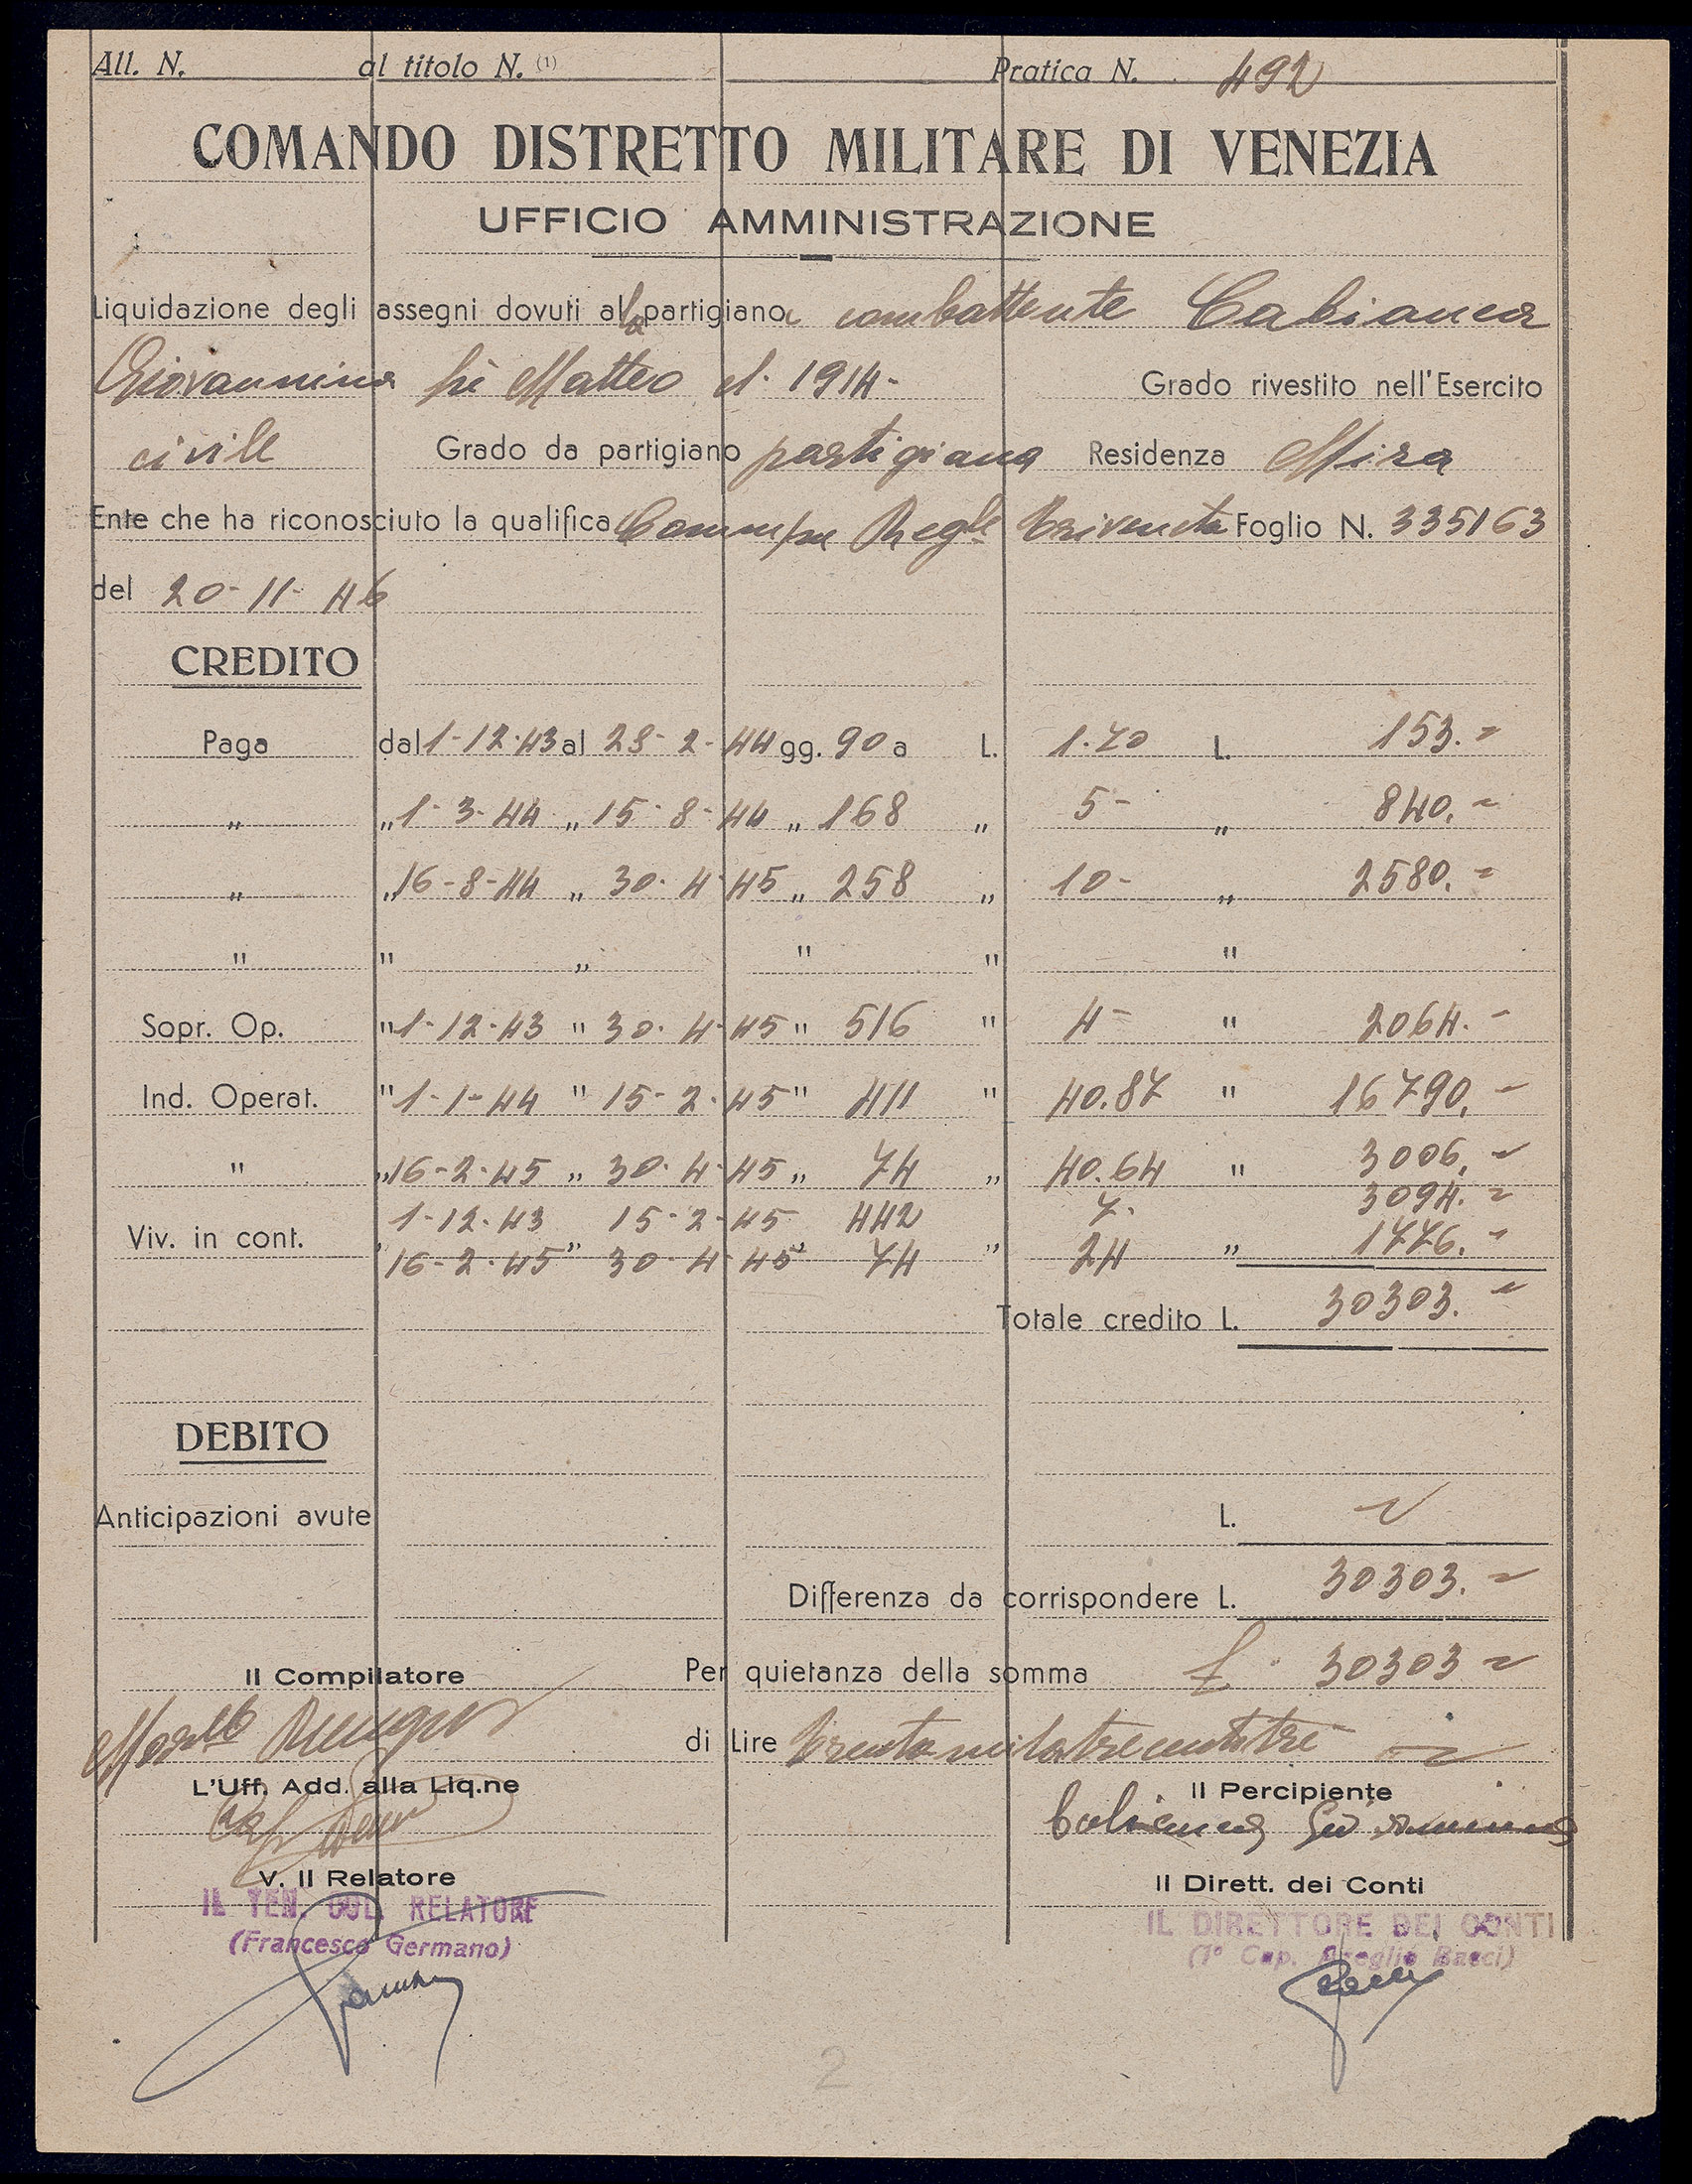 All. N. al titolo N. (1) Pratica N. 492
COMANDO DISTRETTO MILITARE DI VENEZIA
UFFICIO AMMINISTRAZIONE
Liquidazione degli assegni dovuti alla partigiana combattente Cabianca
Giovannina fu Matteo cl. 1914- Grado rivestito nell'Esercito
civile Grado da partigiano partigiana Residenza Mira
Ente che ha riconosciuto la qualifica Comm/ne Regle Triveneta Foglio N. 335163
del 20-11-46
CREDITO
Paga dal 1-12-43 al 28-2-44 gg. 90 a L. 1.70 L. 153.-
" " 1-3-44 " 15-8-44 " 168 " 5- " 840.-
" " 16-8-44 " 30-4-45 " 258 " 10- " 2580.-
" " " " " "
Sopr. Op. " 1-12-43 " 30-4-45 " 516 " 4- " 2064.-
Ind. Operat. " 1-1-44 " 15-2-45 " 411 " 40.87 " 16790.-
" " 16-2-45 " 30-4-45 " 74 " 40.64 " 3006.-
1-12-43 15-2-45 442 7. 3094.-
Viv. in cont. " 16-2-45 " 30-4-45 " 74 " 24 " 1776.-
Totale credito L. 30303.-
DEBITO
Anticipazioni avute L. ~
Differenza da corrispondere L. 30303.-
Il Compilatore Per quietanza della somma £. 30303 ~
di Lire trentamilatrecentotre ~
L'Uff. Add. alla Liq.ne Il Percipiente
Cabianca Giovannina
V. Il Relatore Il Dirett. dei Conti
IL TEN. COL. RELATORE IL DIRETTORE DEI CONTI
(Francesco Germano) (1° Cap. Bacci)
2